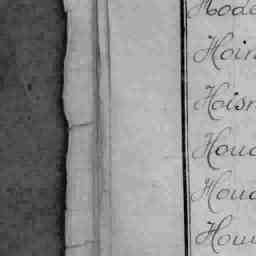 Hode
Hoin
Hoisn
Houd
Houd
Hou